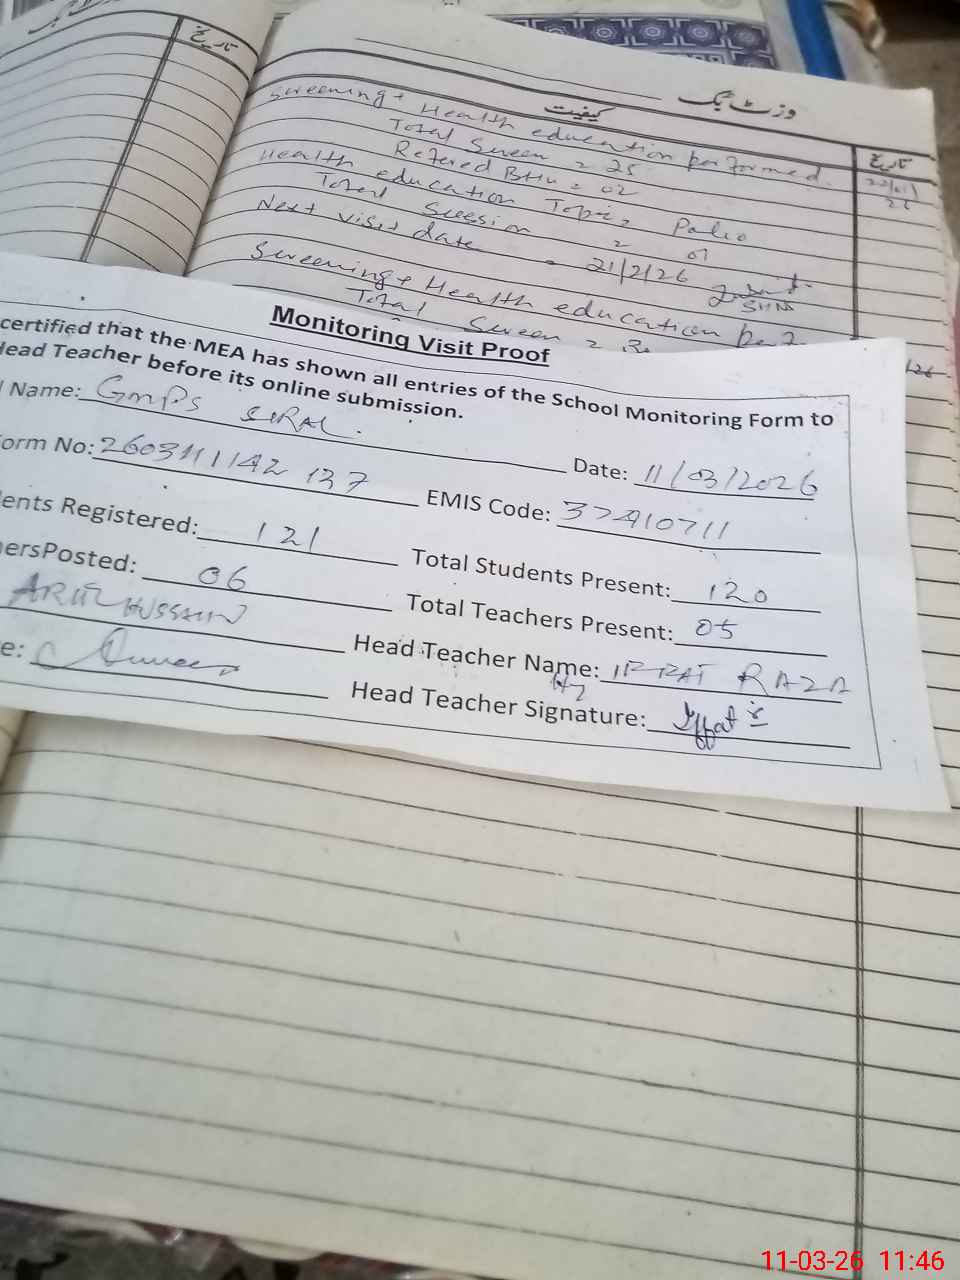 تاریخ
وزٹ بُک
کیفیت
تاریخ
Screening + Health education performed.
Total Screen = 25
Refered BHU = 02
Health education Topic, Polio
Total Session = 01
Next visit date = 21/2/26
SHNS
Screening + Health education
Total Screen =
Monitoring Visit Proof
certified that the MEA has shown all entries of the School Monitoring Form to
Head Teacher before its online submission.
Name: GMPS SIRAL.
Date: 11/03/2026
orm No:
EMIS Code: 37410711
ents Registered: 121
Total Students Present: 120
ersPosted: 06
Total Teachers Present: 05
HUSSAIN
Head Teacher Name: RAZA
e:
Head Teacher Signature: Iffat
11-03-26 11:46